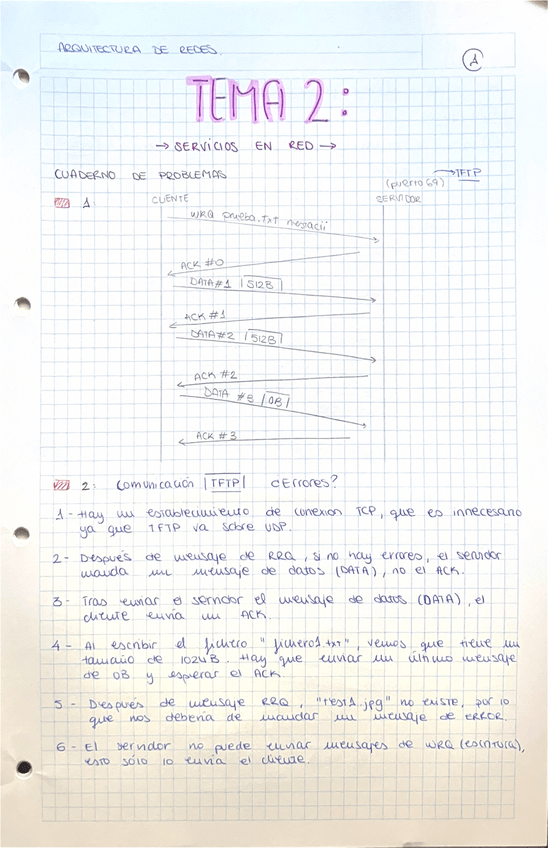 ARQUITECTURA DE REDES.
1
TEMA 2:
→ SERVICIOS EN RED →
CUADERNO DE PROBLEMAS
(puerto 69) → TFTP
1. CLIENTE SERVIDOR
WRQ prueba.txt netascii
ACK #0
DATA #1 |512B|
ACK #1
DATA #2 |512B|
ACK #2
DATA #3 |0B|
ACK #3
2: Comunicación |TFTP| ¿Errores?
1 - Hay un establecimiento de conexion TCP, que es innecesario
ya que TFTP va sobre UDP.
2 - Después de mensaje de RRQ, si no hay errores, el servidor
manda un mensaje de datos (DATA), no el ACK.
3 - Tras enviar el servidor el mensaje de datos (DATA), el
cliente envía un ACK.
4 - Al escribir el fichero "fichero1.txt", vemos que tiene un
tamaño de 1024B. Hay que enviar un último mensaje
de 0B y esperar el ACK.
5 - Después de mensaje RRQ, "test1.jpg" no existe, por lo
que nos debería de mandar un mensaje de ERROR.
6 - El servidor no puede enviar mensajes de WRQ (escritura),
esto sólo lo envía el cliente.